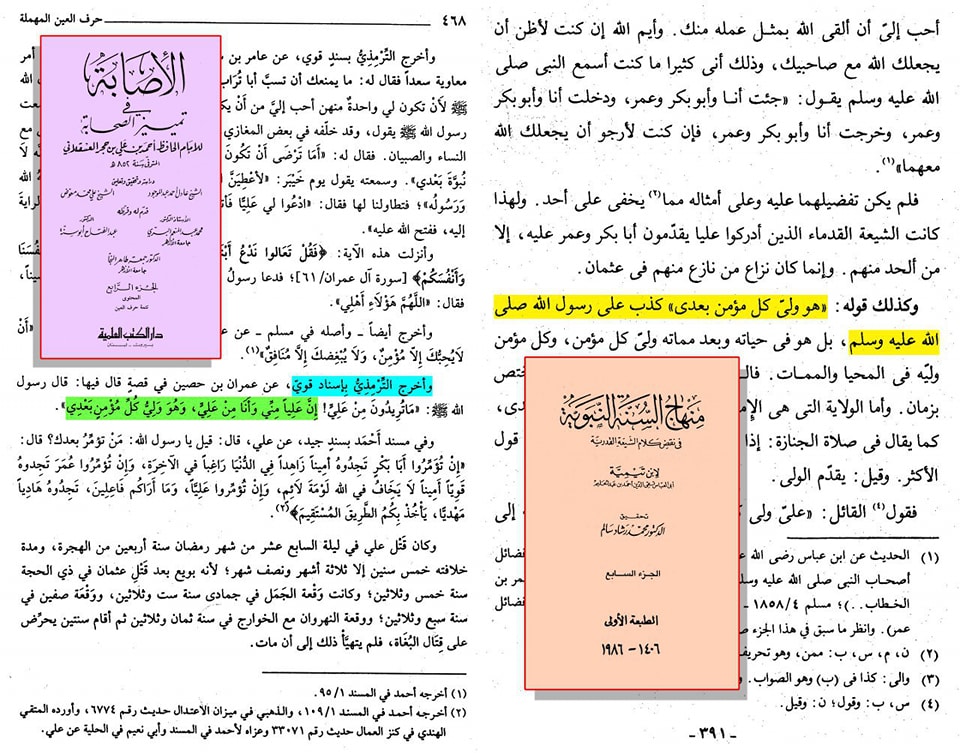 أحب إلىّ أن ألقى الله بمثل عمله منك. وأيم الله إن كنت لأظن أن
يجعلك الله مع صاحبيك، وذلك أنى كثيرا ما كنت أسمع النبى صلى
الله عليه وسلم يقول: «جئت أنا وأبو بكر وعمر، ودخلت أنا وأبو بكر
وعمر، وخرجت أنا وأبو بكر وعمر، فإن كنت لأرجو أن يجعلك الله
معهما»(١).
فلم يكن تفضيلهما عليه وعلى أمثاله مما(٢) يخفى على أحد. ولهذا
كانت الشيعة القدماء الذين أدركوا عليا يقدّمون أبا بكر وعمر عليه، إلا
من ألحد منهم. وإنما كان نزاع من نازع منهم فى عثمان.
وكذلك قوله: «هو ولىّ كل مؤمن بعدى» كذب على رسول الله صلى
الله عليه وسلم، بل هو فى حياته وبعد مماته ولىّ كل مؤمن، وكل مؤمن
وليّه فى المحيا والممات. فال
ختص
بزمان. وأما الولاية التى هى الإم
دى،
كما يقال فى صلاة الجنازة: إذا
قول
الأكثر. وقيل: يقدّم الولى.
فقول(٤) القائل: «علىّ ولى ك
إلى
(١) الحديث عن ابن عباس رضى الله ع
فضائل
أصحاب النبى صلى الله عليه وسلم
مر بن
الخطاب..)؛ مسلم ١٨٥٨/٤ -
فضائل
عمر). وانظر ما سبق فى هذا الجزء ص
(٢) ن، م، س، ب: ممن، وهو تحريف
(٣) والى: كذا فى (ب) وهو الصواب.
(٤) س، ب: وقول؛ ن: وقيل.
- ٣٩١ -
منهاج السنة النبوية
فى نقض كلام الشيعة القدرية
لابن تيمية
أبى العباس تقى الدين أحمد بن عبد الحليم
تحقيق
الدكتور محمد رشاد سالم
الجزء السابع
الطبعة الأولى
١٤٠٦ - ١٩٨٦
٤٦٨
حرف العين المهملة
وأخرج التِّرْمِذِيُّ بسندٍ قوي، عن عامر بن س
أمر
معاوية سعداً فقال له: ما يمنعك أن تسبَّ أبا تُرَاب
الله
ﷺ لَأَنْ تكون لي واحدةٌ منهن أحب إليَّ من أَنْ يك
رسول الله ﷺ يقول، وقد خلّفه في بعض المغازي
مع
النساء والصبيان. فقال له: «أَمَا تَرْضَى أَنْ تَكُونَ
لَا
نُبوَّةَ بَعْدِي». وسمعته يقول يوم خَيْبَر: «لأُعْطِيَنَّ
الله
وَرَسُولُه»؛ فتطاولنا لها فقال: «ادْعُوا لي عَلِيّاً فَأ
راية
إليه، ففتح الله عليه».
وأنزلت هذه الآية: ﴿فَقُلْ تَعَالوا نَدْعُ أَبْ
وَأَنْفُسَكُمْ﴾ [سورة آل عمران/٦١]؛ فدعا رسول
فقال: «اللَّهُمَّ هَؤُلَاءِ أَهْلِي».
وأخرج أيضاً ـ وأصله في مسلم ـ عن
«أَنْ
لاَيُحِبَّكَ إِلاَّ مُؤْمِنٌ، وَلاَ يُبْغِضكَ إلاَّ مُنَافِقٌ»(١).
وأخرج التِّرْمِذيُّ بإسناد قويّ، عن عمران بن حصين في قصةٍ قال فيها: قال رسول
الله ﷺ: «مَاتُرِيدُونَ مِنْ عَلِيّ! إنَّ عَلِياً مِنِّي وَأَنَا مِنْ عَلِيٍّ، وَهُوَ وَلِيُّ كُلِّ مُؤْمِنٍ بَعْدِي».
وفي مسند أَحْمَد بسندٍ جيد، عن علي، قال: قيل يا رسول الله: مَنْ تؤمِّرُ بعدك؟ قال:
«إِنْ تُؤَمِّرُوا أَبَا بَكْرٍ تَجِدُوهُ أميناً زَاهِداً فِي الدُّنْيَا رَاغِباً في الآخِرَةِ، وَإِنْ تُؤَمِّرُوا عُمَرَ تَجِدوهُ
قَوِيّاً أَمِيناً لاَ يَخَافُ في الله لَوْمَةَ لاَئِمٍ، وَإِنْ تُؤَمِّرُوا عَلِيّاً، وَمَا أَرَاكُم فَاعِلِينَ، تَجِدُوهُ هَادِياً
مَهْدِيّاً، يَأْخُذْ بِكُمُ الطَّرِيقَ المُسْتَقِيمَ»(٢).
وكان قَتْل علي في ليلة السابع عشر من شهر رمضان سنة أربعين من الهجرة، ومدة
خلافته خمس سنين إلا ثلاثة أشهر ونصف شهر؛ لأنه بويع بعد قَتْلِ عثمان في ذي الحجة
سنة خمس وثلاثين؛ وكانت وَقْعة الجَمَل في جمادى سنة ست وثلاثين، ووَقْعَة صفين في
سنة سبع وثلاثين؛ ووقعة النهروان مع الخوارج في سنة ثمان وثلاثين ثم أقام سنتين يحرِّض
على قِتَال البُغَاة، فلم يتهيَّأ ذلك إلى أن مات.
(١) أخرجه أحمد في المسند ٩٥/١.
(٢) أخرجه أحمد في المسند ١٠٩/١، والذهبي في ميزان الاعتدال حديث رقم ٦٧٧٤، وأورده المتقي
الهندي في كنز العمال حديث رقم ٣٣٠٧١ وعزاه لأحمد في المسند وأبي نعيم في الحلية عن علي.
الإصابة
في
تمييز الصحابة
للإمام الحافظ أحمد بن علي بن حجر العسقلاني
المتوفى سنة ٨٥٢ هـ
دراسة وتحقيق وتعليق
الشيخ عادل أحمد عبد الموجود
الشيخ علي محمد معوض
قدم له وقرظه
الأستاذ الدكتور
محمد عبد المنعم البري
جامعة الأزهر
الدكتور
عبد الفتاح أبو سنة
الدكتور جمعة طاهر النجار
جامعة الأزهر
الجزء الرابع
المحتوى
تتمة حرف العين
دار الكتب العلمية
بيروت - لبنان